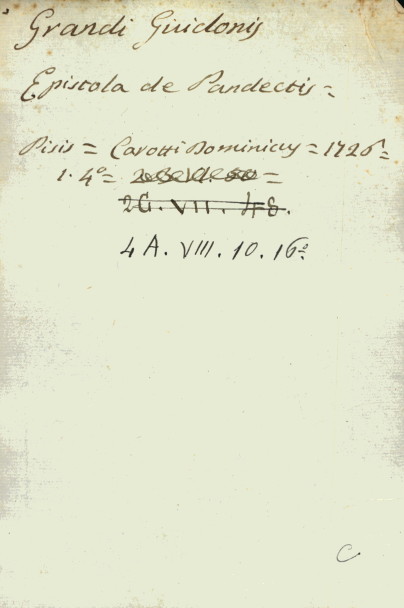 Grandi Guidonis
Epistola de Pandectis =
Pisis = Carotti Dominicus = 1726 =
1. 4° = =
2G. VII. 48.
4 A. VIII. 10. 16°
C